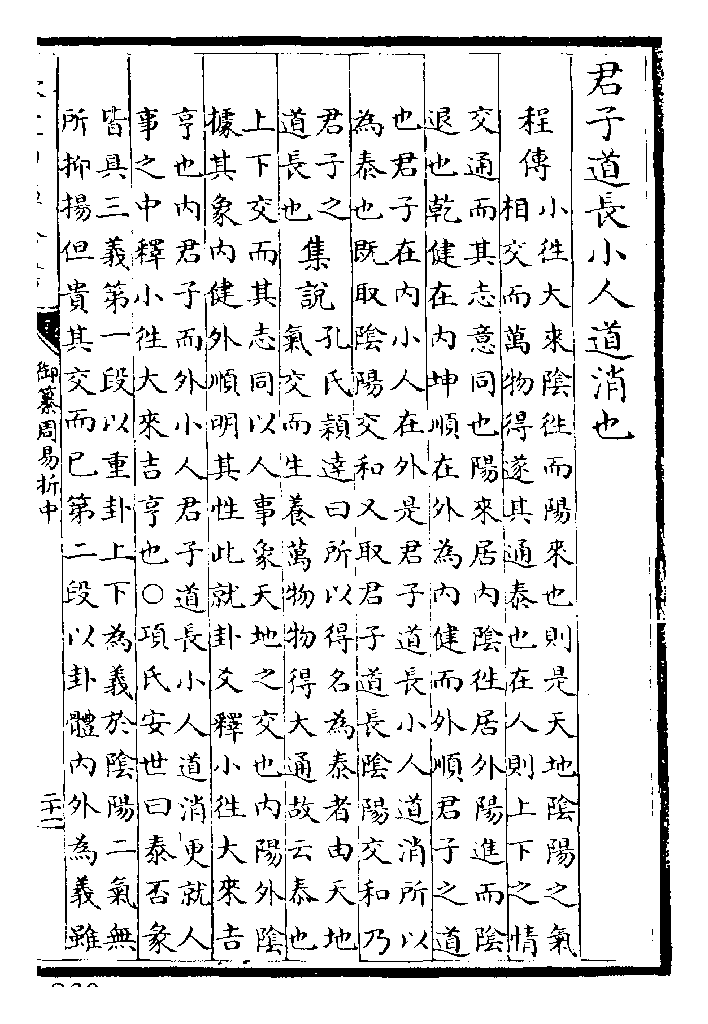 君子道長小人道消也
程傳
小徃大來陰徃而陽來也則是天地陰陽之氣
相交而萬物得遂其通泰也在人則上下之情
交通而其志意同也陽來居内陰徃居外陽進而陰
退也乾健在内坤順在外為内健而外順君子之道
也君子在内小人在外是君子道長小人道消所以
為泰也既取陰陽交和又取君子道長陰陽交和乃
君子之
道長也
集說
孔氏穎達曰所以得名為泰者由天地
氣交而生養萬物物得大通故云泰也
上下交而其志同以人事象天地之交也内陽外陰
據其象内健外順明其性此就卦爻釋小徃大來吉
亨也内君子而外小人君子道長小人道消更就人
事之中釋小徃大來吉亨也○項氏安世曰泰否彖
皆具三義第一段以重卦上下為義於陰陽二氣無
所抑揚但貴其交而已第二段以卦體内外為義雖
御纂周易折中